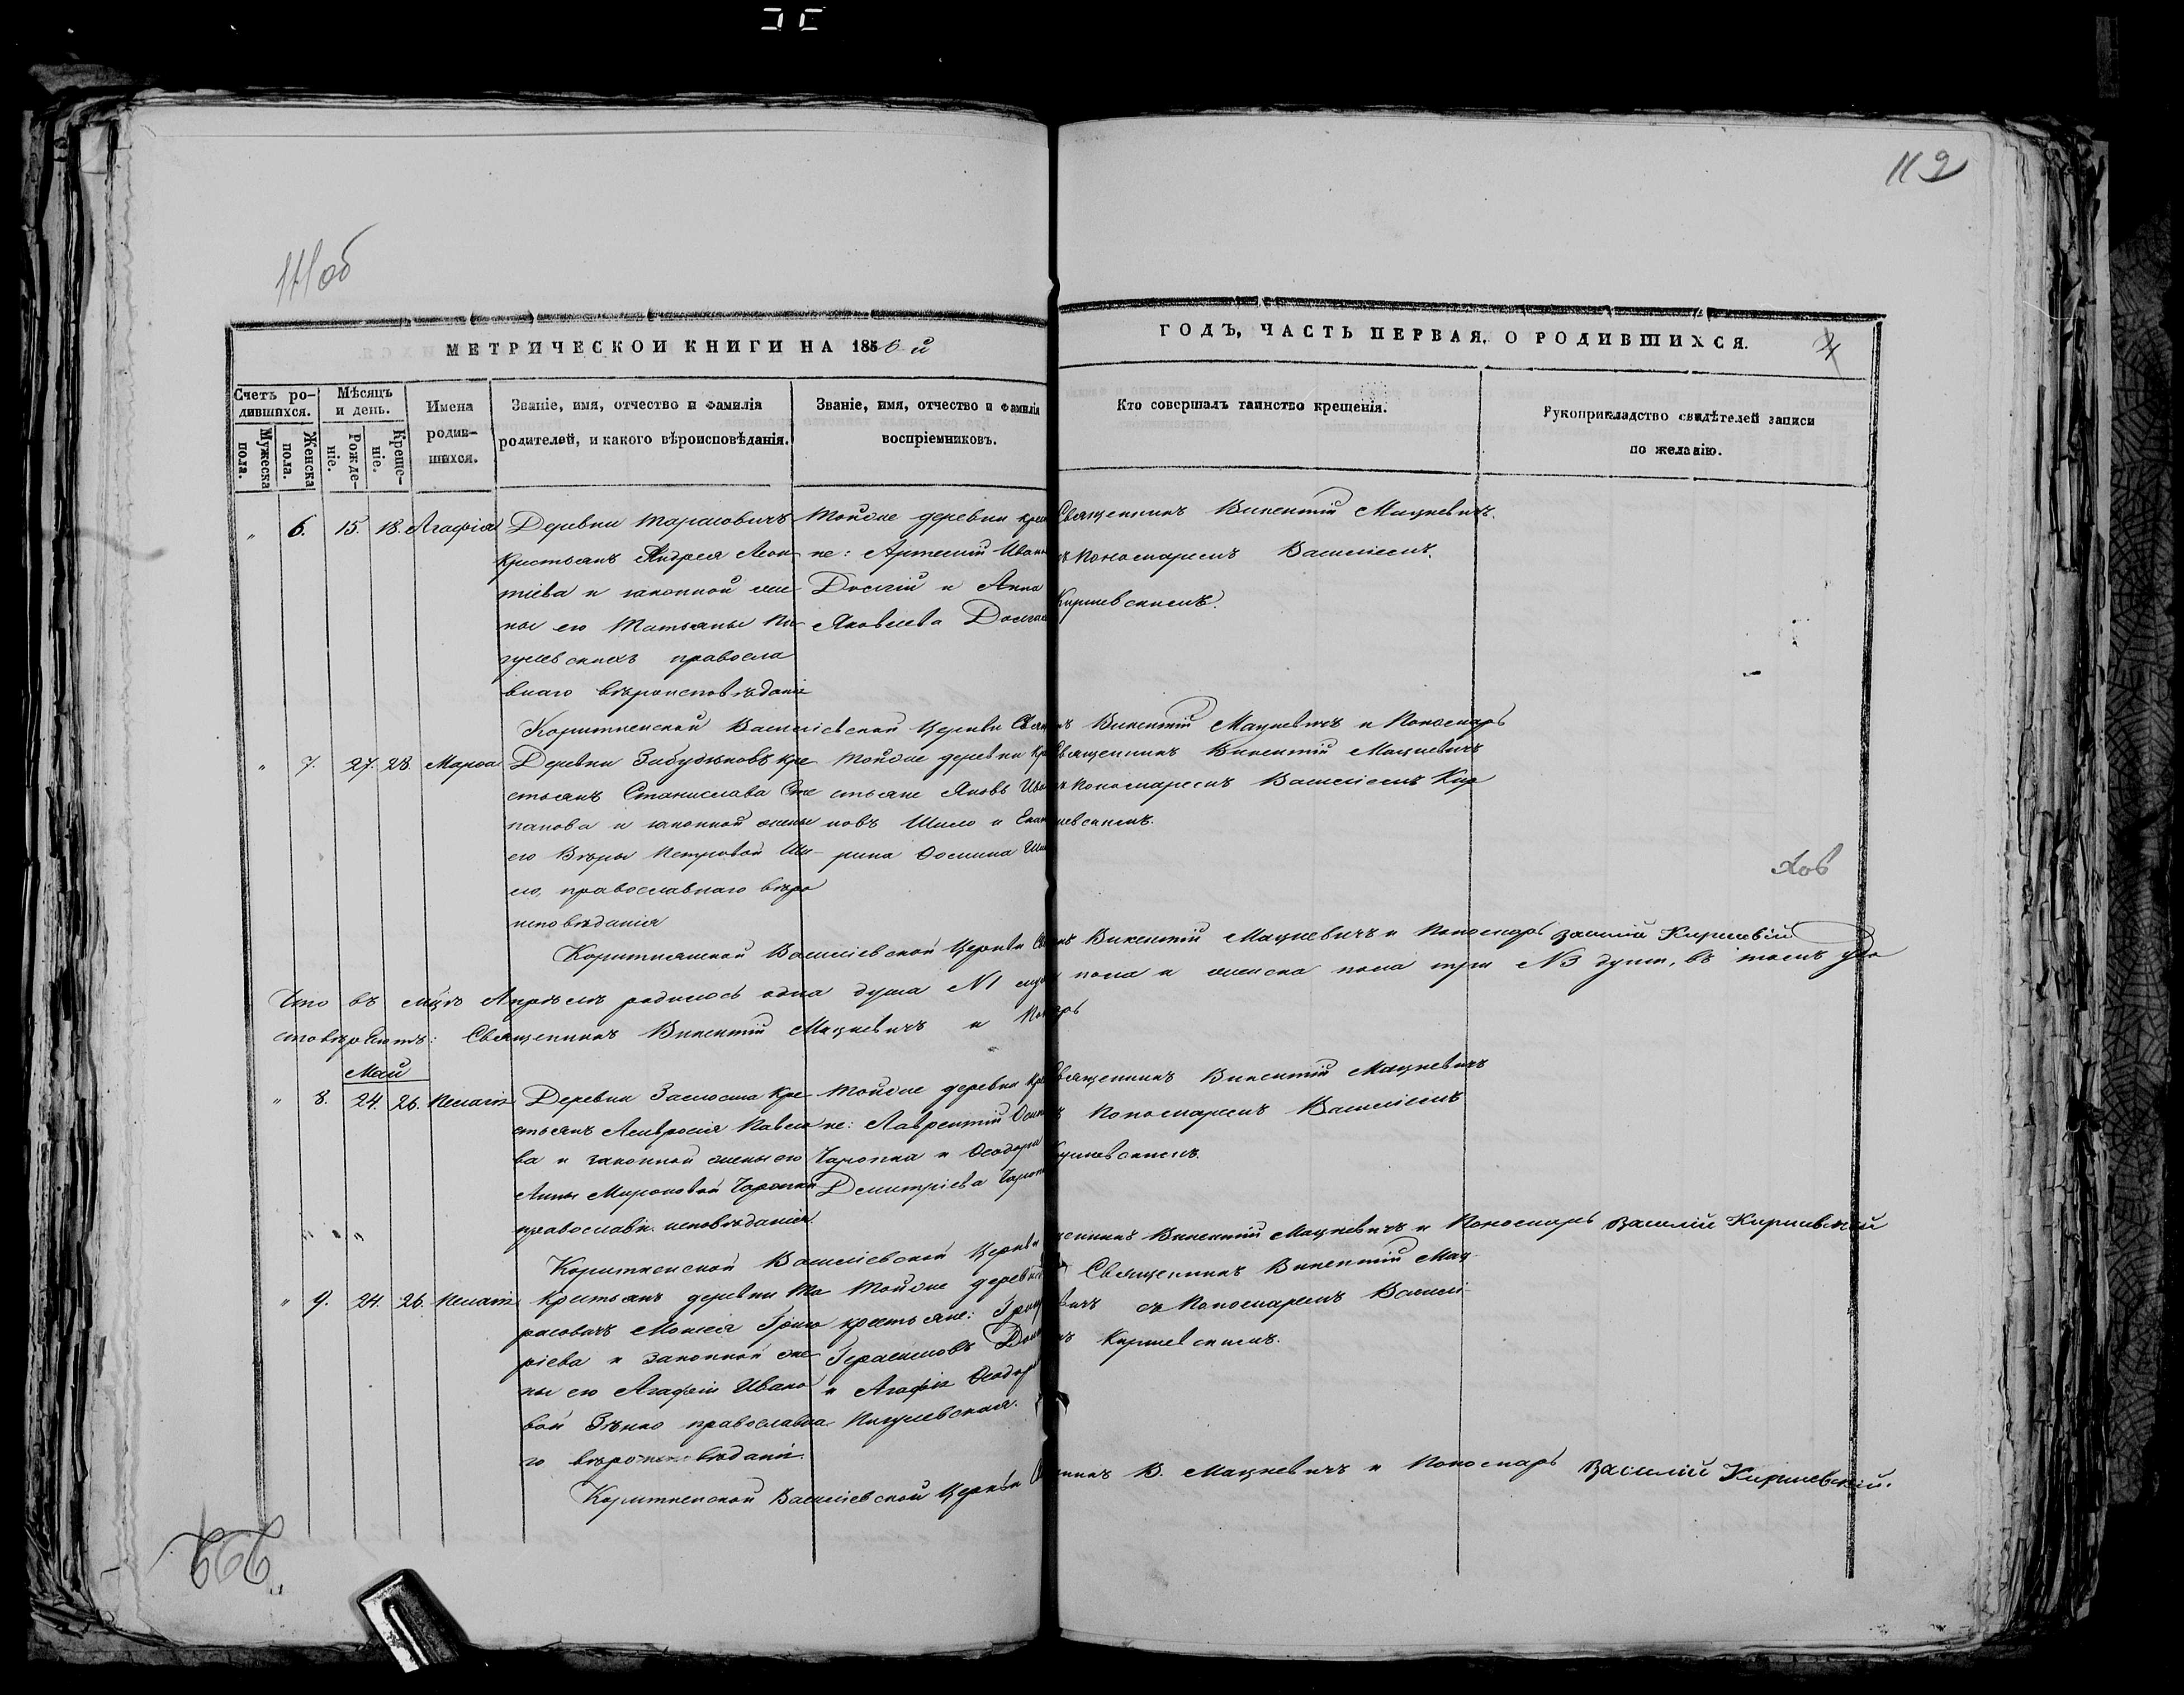 111об
112
МЕТРИЧЕСКОЙ КНИГИ НА 1856 й
ГОДЪ, ЧАСТЬ ПЕРВАЯ, О РОДИВШИХСЯ.
4
Счетъ родившихся.
Мужеска пола.
Женска пола.
Мѣсяцъ и день.
Рожденіе.
Крещеніе.
Имена родившихся.
Званіе, имя, отчество и фамилія
родителей, и какого вѣроисповѣданія.
Званіе, имя, отчество и фамилія
воспріемниковъ.
Кто совершалъ таинство крещенія.
Рукоприкладство свидѣтелей записи
по желанію.
" 6. 15. 18. Агафія
Деревни Тарасовичъ
крестьянъ Андрея Леон-
тіева и законной же-
ны его Татьяны Пи-
гулевскихъ правосла
внаго вѣроисповѣданіе
Тойже деревни крес
не: Артемій Иван
Долгій и Анна
Яковлева Долгая
Священникъ Викентій Мацкевичъ.
съ Пономаремъ Василіемъ
Киршевскимъ.
Василіевской Церкви Свя нъ Викентій Мацкевичъ и Пономарь
" 7. 27. 28. Марѳа
Деревни кре
стьянъ Станислава Сте
панова и законной жены
его Вѣры Петровой Ши-
ло, православнаго вѣро
исповѣданія
Тойже деревни Кре
стьяне Яковъ Ива
новъ Шило и Екате
рина Ѳомина Ши
Священникъ Викентій Мацкевичъ
съ Пономаремъ Василіемъ Кир
шевскимъ.
Василіевской Церкви Викентій Мацкевичъ и Пономарь Василій Киршевскій
Что въ мцѣ Апрѣлѣ родилось одна душа №1 муж пола и женска пола три №3 душъ, въ томъ удо
стовѣряютъ: Священникъ Викентій Мацкевичъ и
Май
" 8. 24. 26. Пелагія
Деревни кре
стьянъ Амвросія Павло
ва и законной жены его
Анны Мироновой
православн. исповѣданія.
Тойже деревни кре
не: Лаврентій Осип
и Ѳеодора
Димитріева
Священникъ Викентій Мацкевичъ
съ Пономаремъ Василіемъ
Киршевскимъ.
Василіевской Церкви Викентій Мацкевичъ и Пономарь Василій Киршевскій
" 9. 24. 26. Пелагія
Крестьянъ деревни Та
расовичъ Моисея Григо
ріева и законной же
ны его Агафіи Ивано
вой Зѣнко православна
го вѣроисповѣданія.
Тойже деревни
крестьяне: Григ
Герасимовъ
и Агафія Ѳеодор
Пигулевская.
Священникъ Викентій Мац-
кевичъ съ Пономаремъ Васи
лі Киршевскимъ.
Василіевской Церкви В. Мацкевичъ и Пономарь Василій Киршевскій.